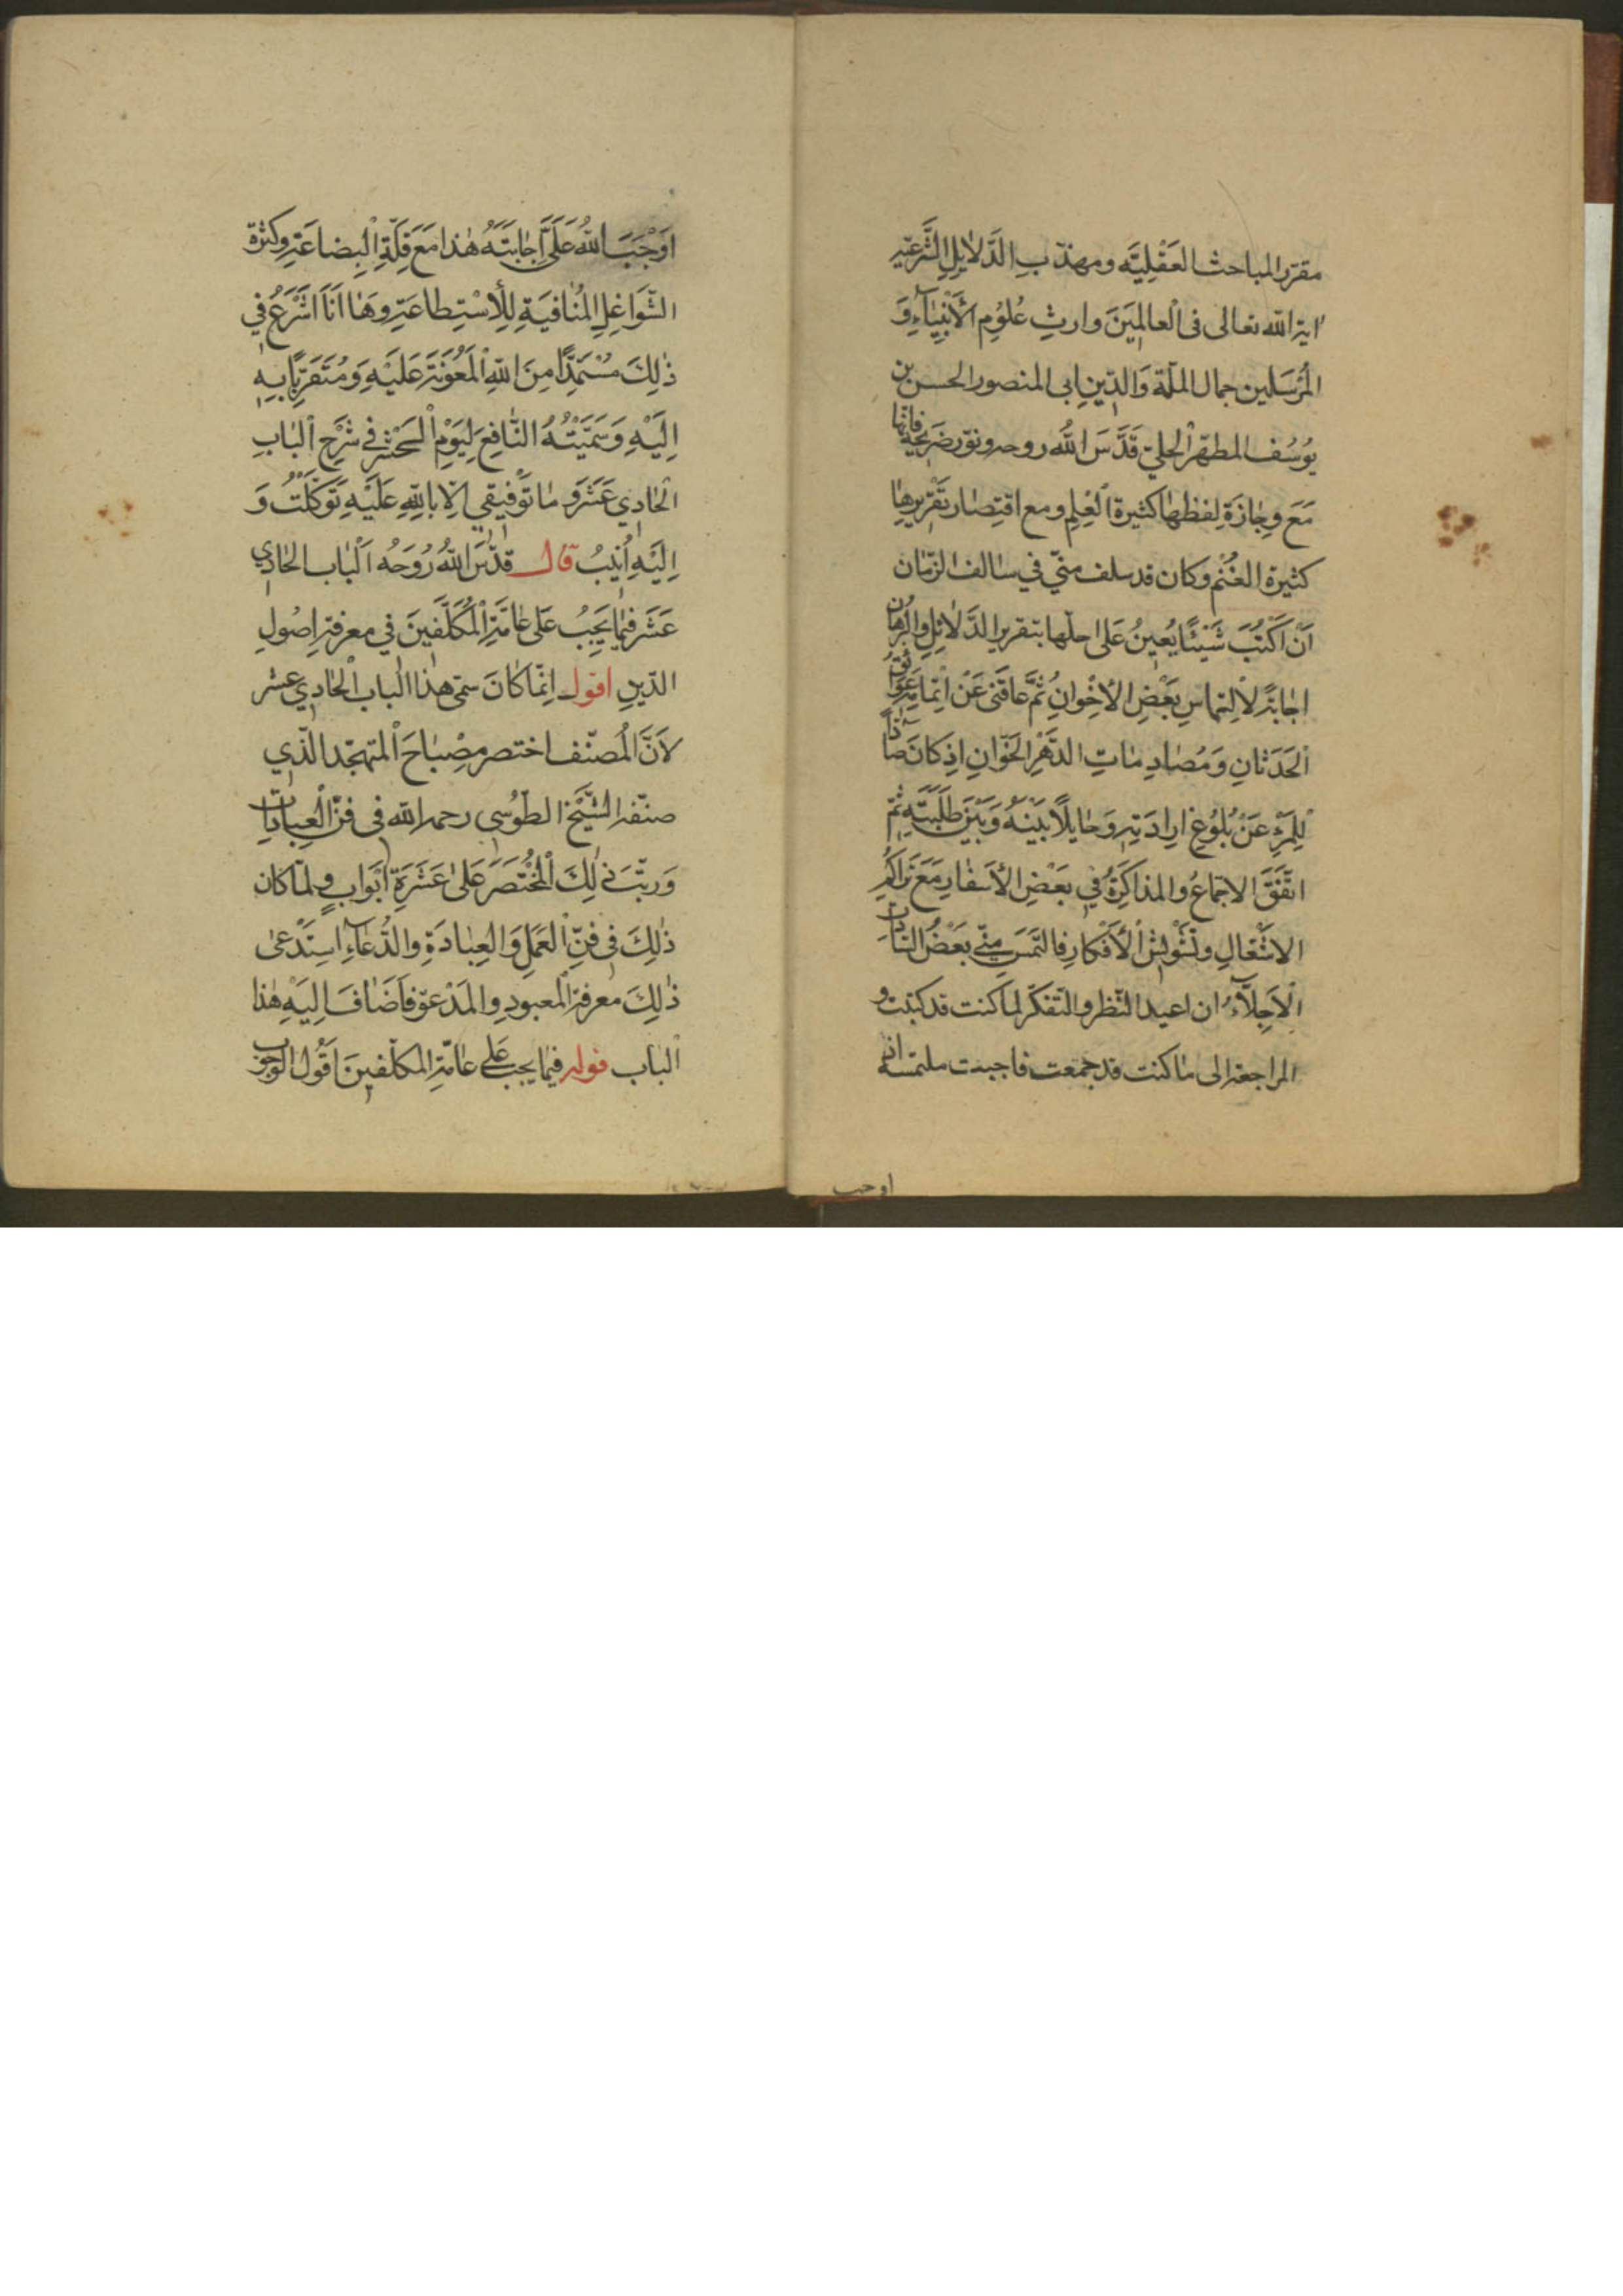 مقرّر المباحث العَقْلِيَّه ومهذّبِ الدَّلايلِ الشَّرعيّه
اية الله تعالى فى الْعالمِينَ وارثِ عُلُومِ الأَنْبِيَآءِ وَ
المُرْسَلين جمال الملّة وَالدّينِ ابى المنصور الحسن بن
يُوسُف المطهّر الحلىّ قَدَّسَ اللهُ روحه ونوّر ضَرِيحَهُ فانّها
مَعَ وِجٰازَةِ لفظها كثيرة الْعِلم ومع اقتِصٰارِ تَقْريرِهٰا
كثيرة الغُنْم وكان قد سلف منّي في سٰالف الزّمٰان
اَنْ اَكْتُبَ شَيْئًا يُعينُ عَلى حلّها بتقرير الدَّلائِلِ والبُرهٰان
اجٰابَةً لاِلتماسِ بَعْضِ الاِخْوانِ ثُمَّ عاقَنى عَنْ اِتمامِهِ عَوٰائِقُ
الْحَدَثٰانِ وَمُصٰادِمٰاتِ الدَّهْرِ الْخَوّانِ اِذ كانَ صٰادّاً
لِلْمَرْءِ عَنْ بُلُوغِ اِرادَتِهِ وَحٰايلًا بَيْنَهُ وَبَيْنَ طَلِبَتِهِ ثُمّ
اتَّفَقَ الاجتماعُ والمذاكِرَةُ في بَعْضِ الأَسفٰارِ مَعَ تَراكُمِ
الاشْغٰالِ وتَشْويشِ الْأَفْكارِ فالتَمَسَ مِنّي بَعْضُ السّادٰاتِ
الْاَجِلّآءِ ان اعيد النّظر والتّفكّر لما كنت قد كتبت و
المراجعة الى مٰا كنت قد جمعت فاجبت ملتمسه اذ
اوجب
اَوْجَبَ اللهُ عَلَىَّ اِجٰابَتَهُ هٰذا مَعَ قِلَّةِ الْبِضاعَةِ وكثرة
الشَّوَاغِلِ الْمُنٰافِيَةِ لِلْاِسْتِطاعَةِ وهٰا اَنَا اَشْرَعُ في
ذٰلِكَ مُسْتَمِدًّا مِنَ اللهِ الْمَعُونَةَ عَلَيْهِ وَمُتَقَرِّبًا بِهِ
اِلَيْهِ وَسَمَّيْتُهُ النّٰافِعَ لِيَوْمِ الْحَشْرِ في شَرْحِ الْبٰابِ
الْحٰادِي عَشَرَ وَ مٰا تَوْفِيقي اِلّا بِاللهِ عَلَيْهِ تَوَكَّلْتُ وَ
اِلَيْهِ اُنِيبُ قال قدّسَ اللهُ رُوحَهُ اَلْبٰاب الحٰادي
عَشَرَ فيمٰا يَجِبُ عَلى عٰامَّةِ الْمُكَلَّفينَ في معرفة اصُولِ
الدّين اقول اِنّمٰا كٰانَ سمّى هٰذا الْباب الحٰادي عشر
لاَنَّ المُصنّف اختصر مِصْبٰاحَ الْمتهجّد الّذي
صنّفه الشَّيْخ الطّوُسى رحمه الله فى فنّ الْعِبٰادٰات
وَرتّبَ ذٰلِكَ الْمُخْتَصَرَ عَلىٰ عَشَرَةِ اَبْوابٍ ولمّا كان
ذٰلِكَ فى فنِّ الْعَمَلِ وَالعِبٰادَةِ والدُّعآءِ اسْتَدْعىٰ
ذٰلِكَ معرفة الْمعبودِ والمَدْعوّ فاَضٰافَ اِلَيْهِ هٰذا
الْبٰاب قوله فيمٰا يجب عَلى عٰامّةِ المكلّفينَ اَقُول الوجوب